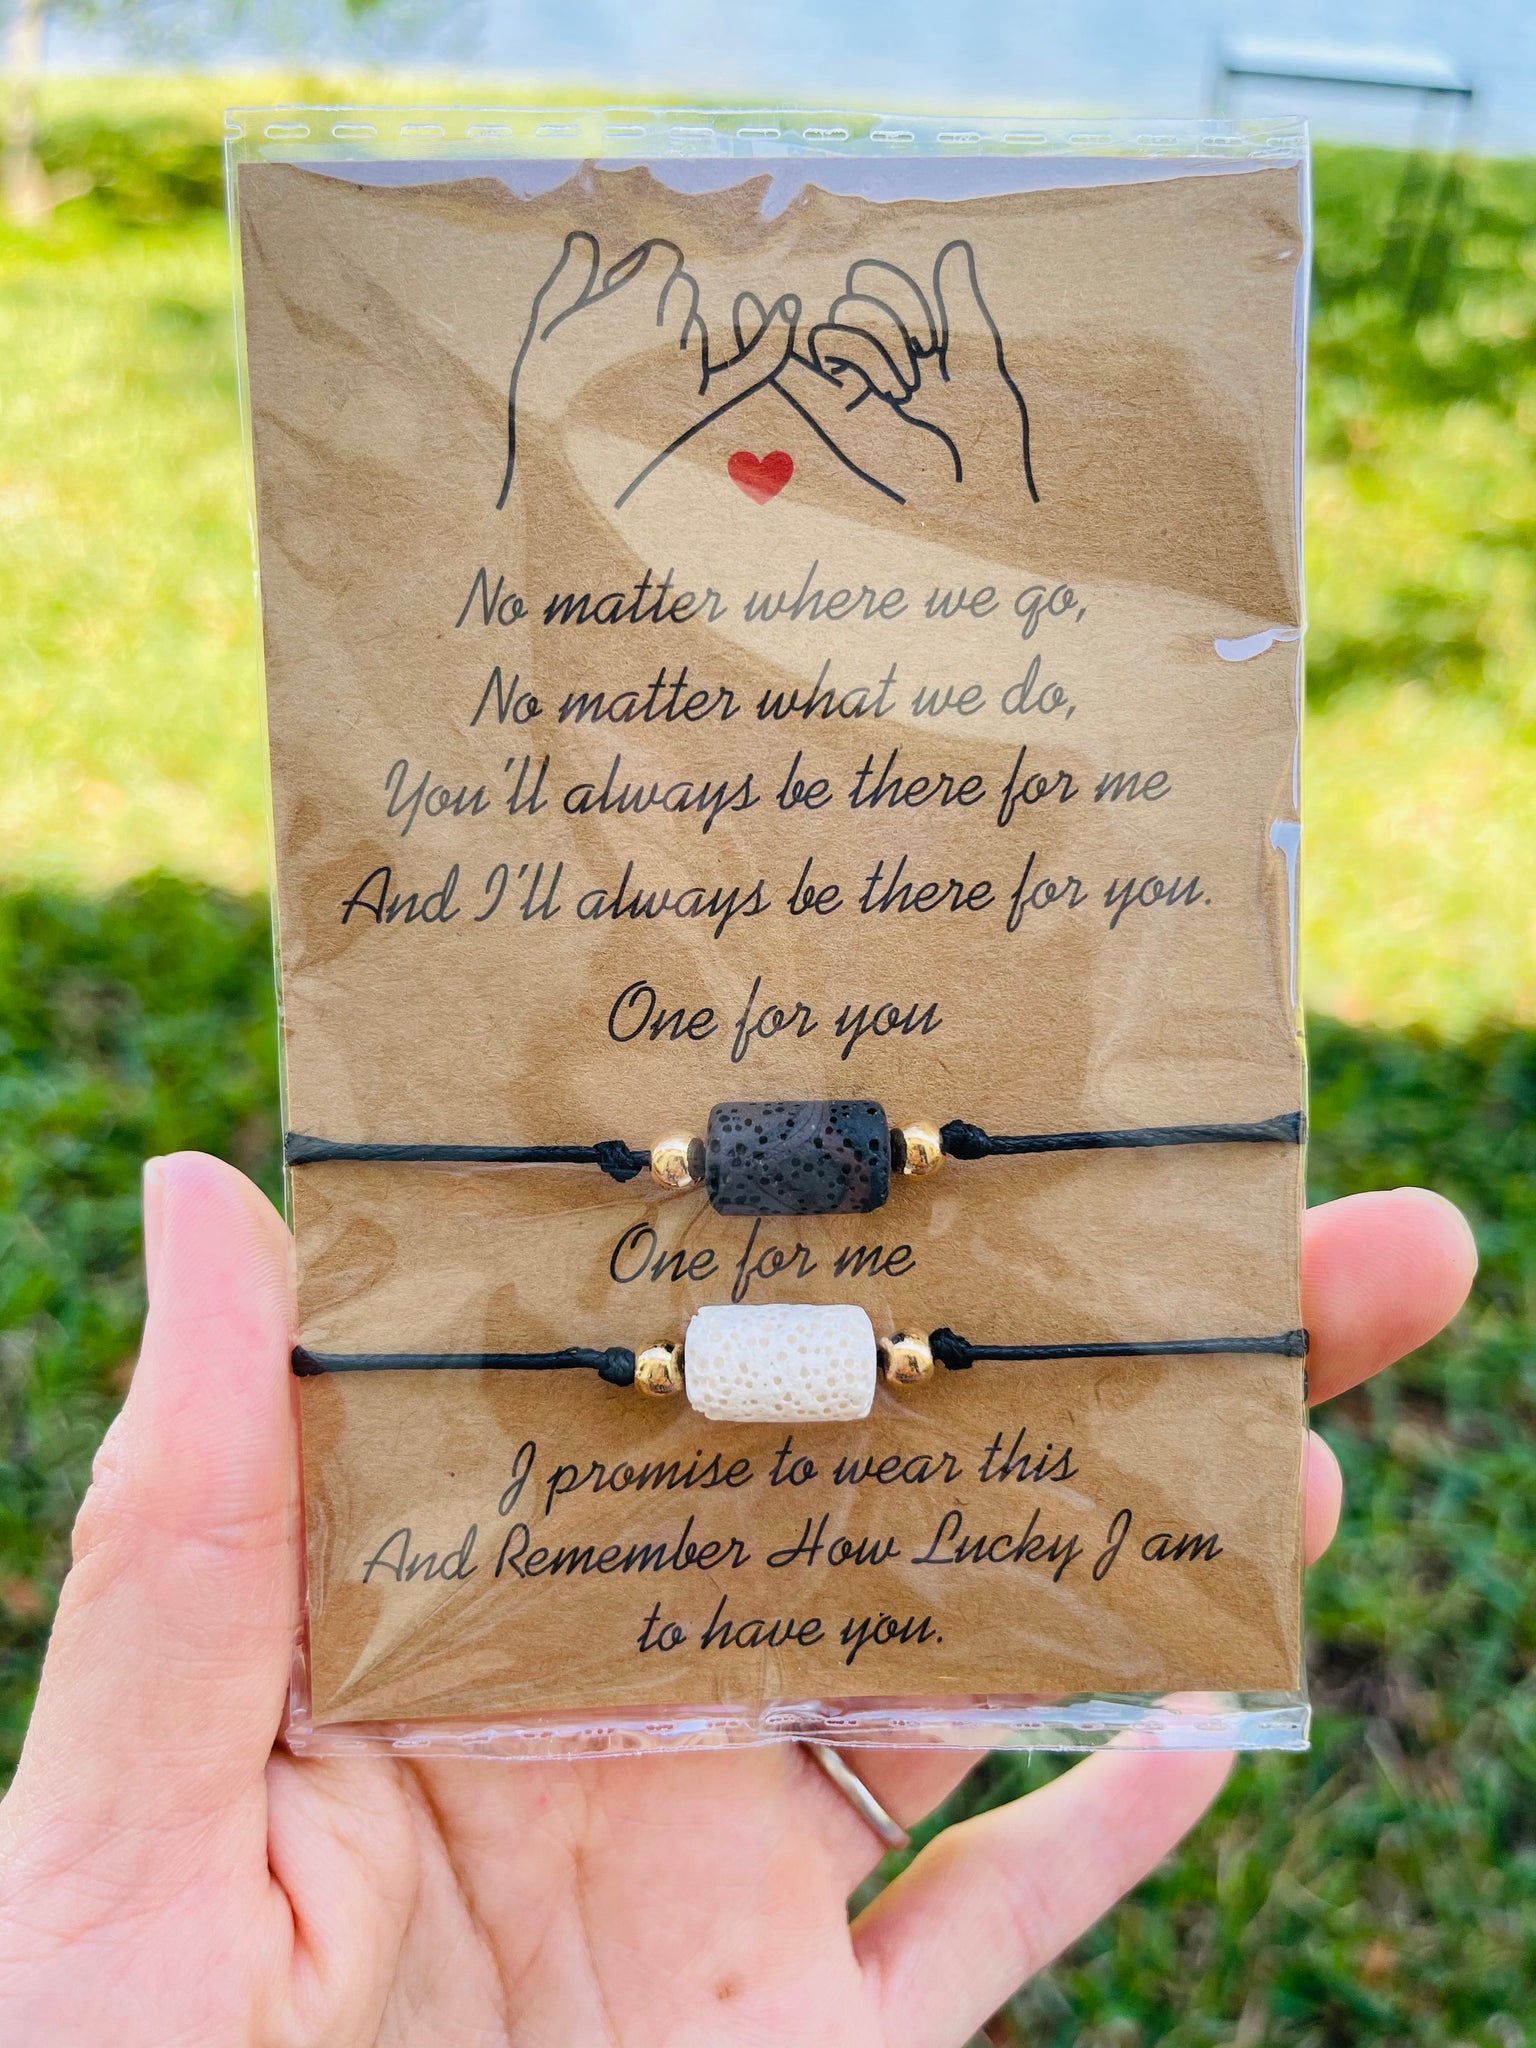 No matter where we go,
No matter what we do,
You'll always be there for me
And I'll always be there for you.
One for you
One for me
I promise to wear this
And Remember How Lucky I am
to have you.